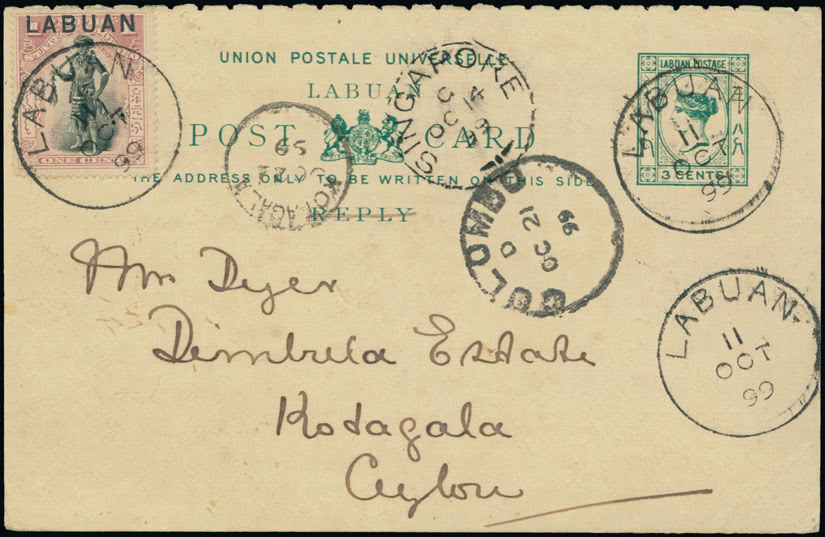 LABUAN
ONE CENT
LABUAN
11
OCT
99
UNION POSTALE UNIVERSELLE
LABUAN
POST CARD
THE ADDRESS ONLY TO BE WRITTEN ON THIS SIDE
REPLY
SINGAPORE
C
OC 14
99
KOTAGALA
OC 22
99
COLOMBO
D
OC 21
99
LABUAN POSTAGE
3 CENTS
LABUAN
11
OCT
99
LABUAN
11
OCT
99
Mrs Dyer
Dimbula Estate
Kotagala
Ceylon